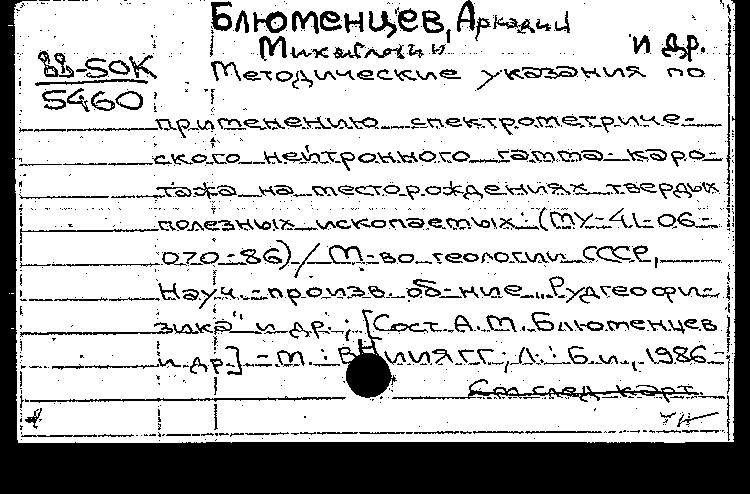 Блюменцев, Аркадий
Михайлович и др.
88-5ОК
5460
Методические указания по
применению спектрометриче-
ского нейтронного гамма-каро-
тажа на месторождениях твердых
полезных ископаемых: (МУ-41-06-
020-86) / М-во геологии СССР,
Науч.-произв. об-ние „Рудгеофи-
зика" и др.; [Сост. А.М. Блюменцев
и др.] - М.: ВНИИЯГГ; Л.: Б.и., 1986-
См. след. карт.